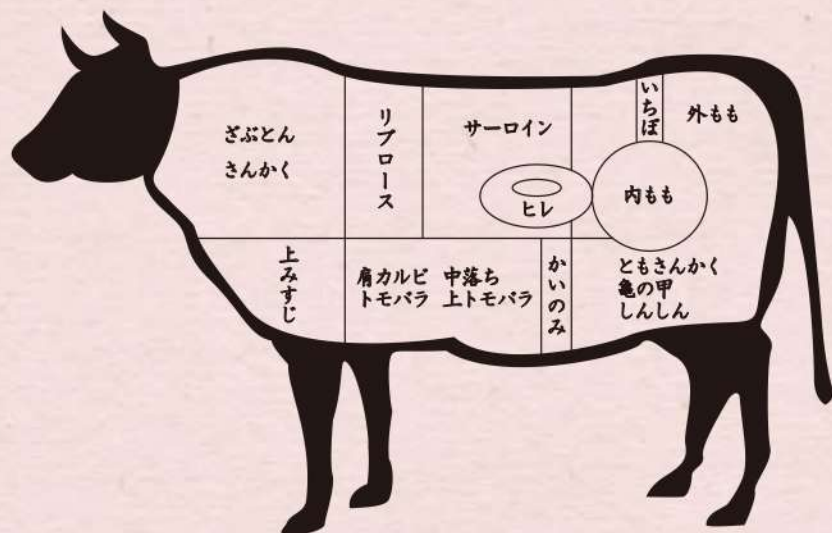 ざぶとん
さんかく
リブロース
サーロイン
ヒレ
いちぼ
外もも
内もも
上みすじ
肩カルビ
トモバラ
中落ち
上トモバラ
かいのみ
ともさんかく
亀の甲
しんしん